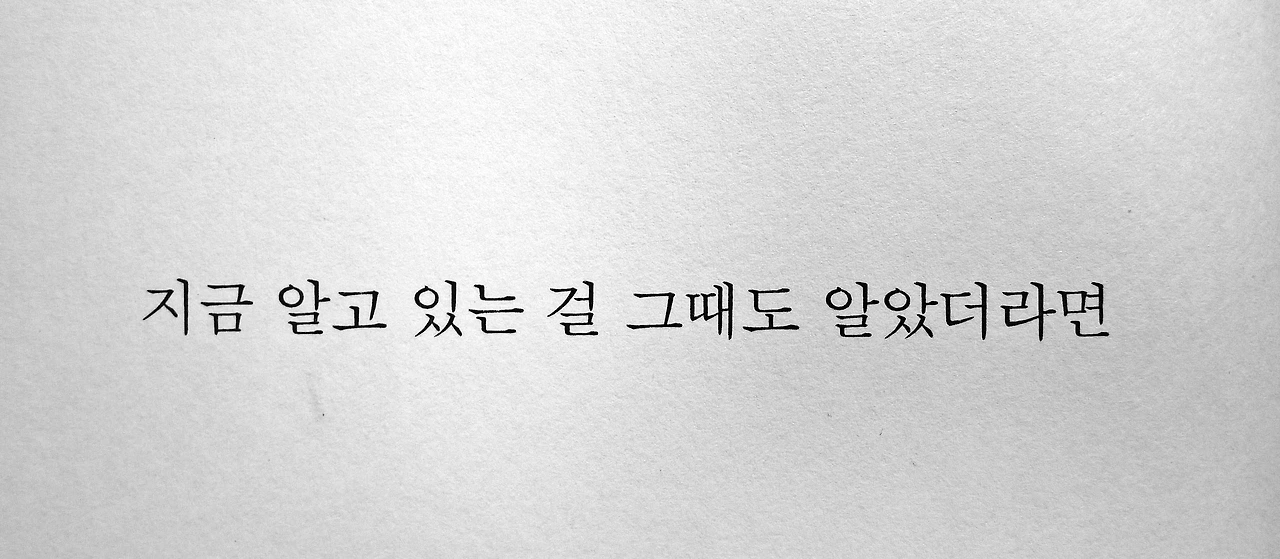 지금 알고 있는 걸 그때도 알았더라면